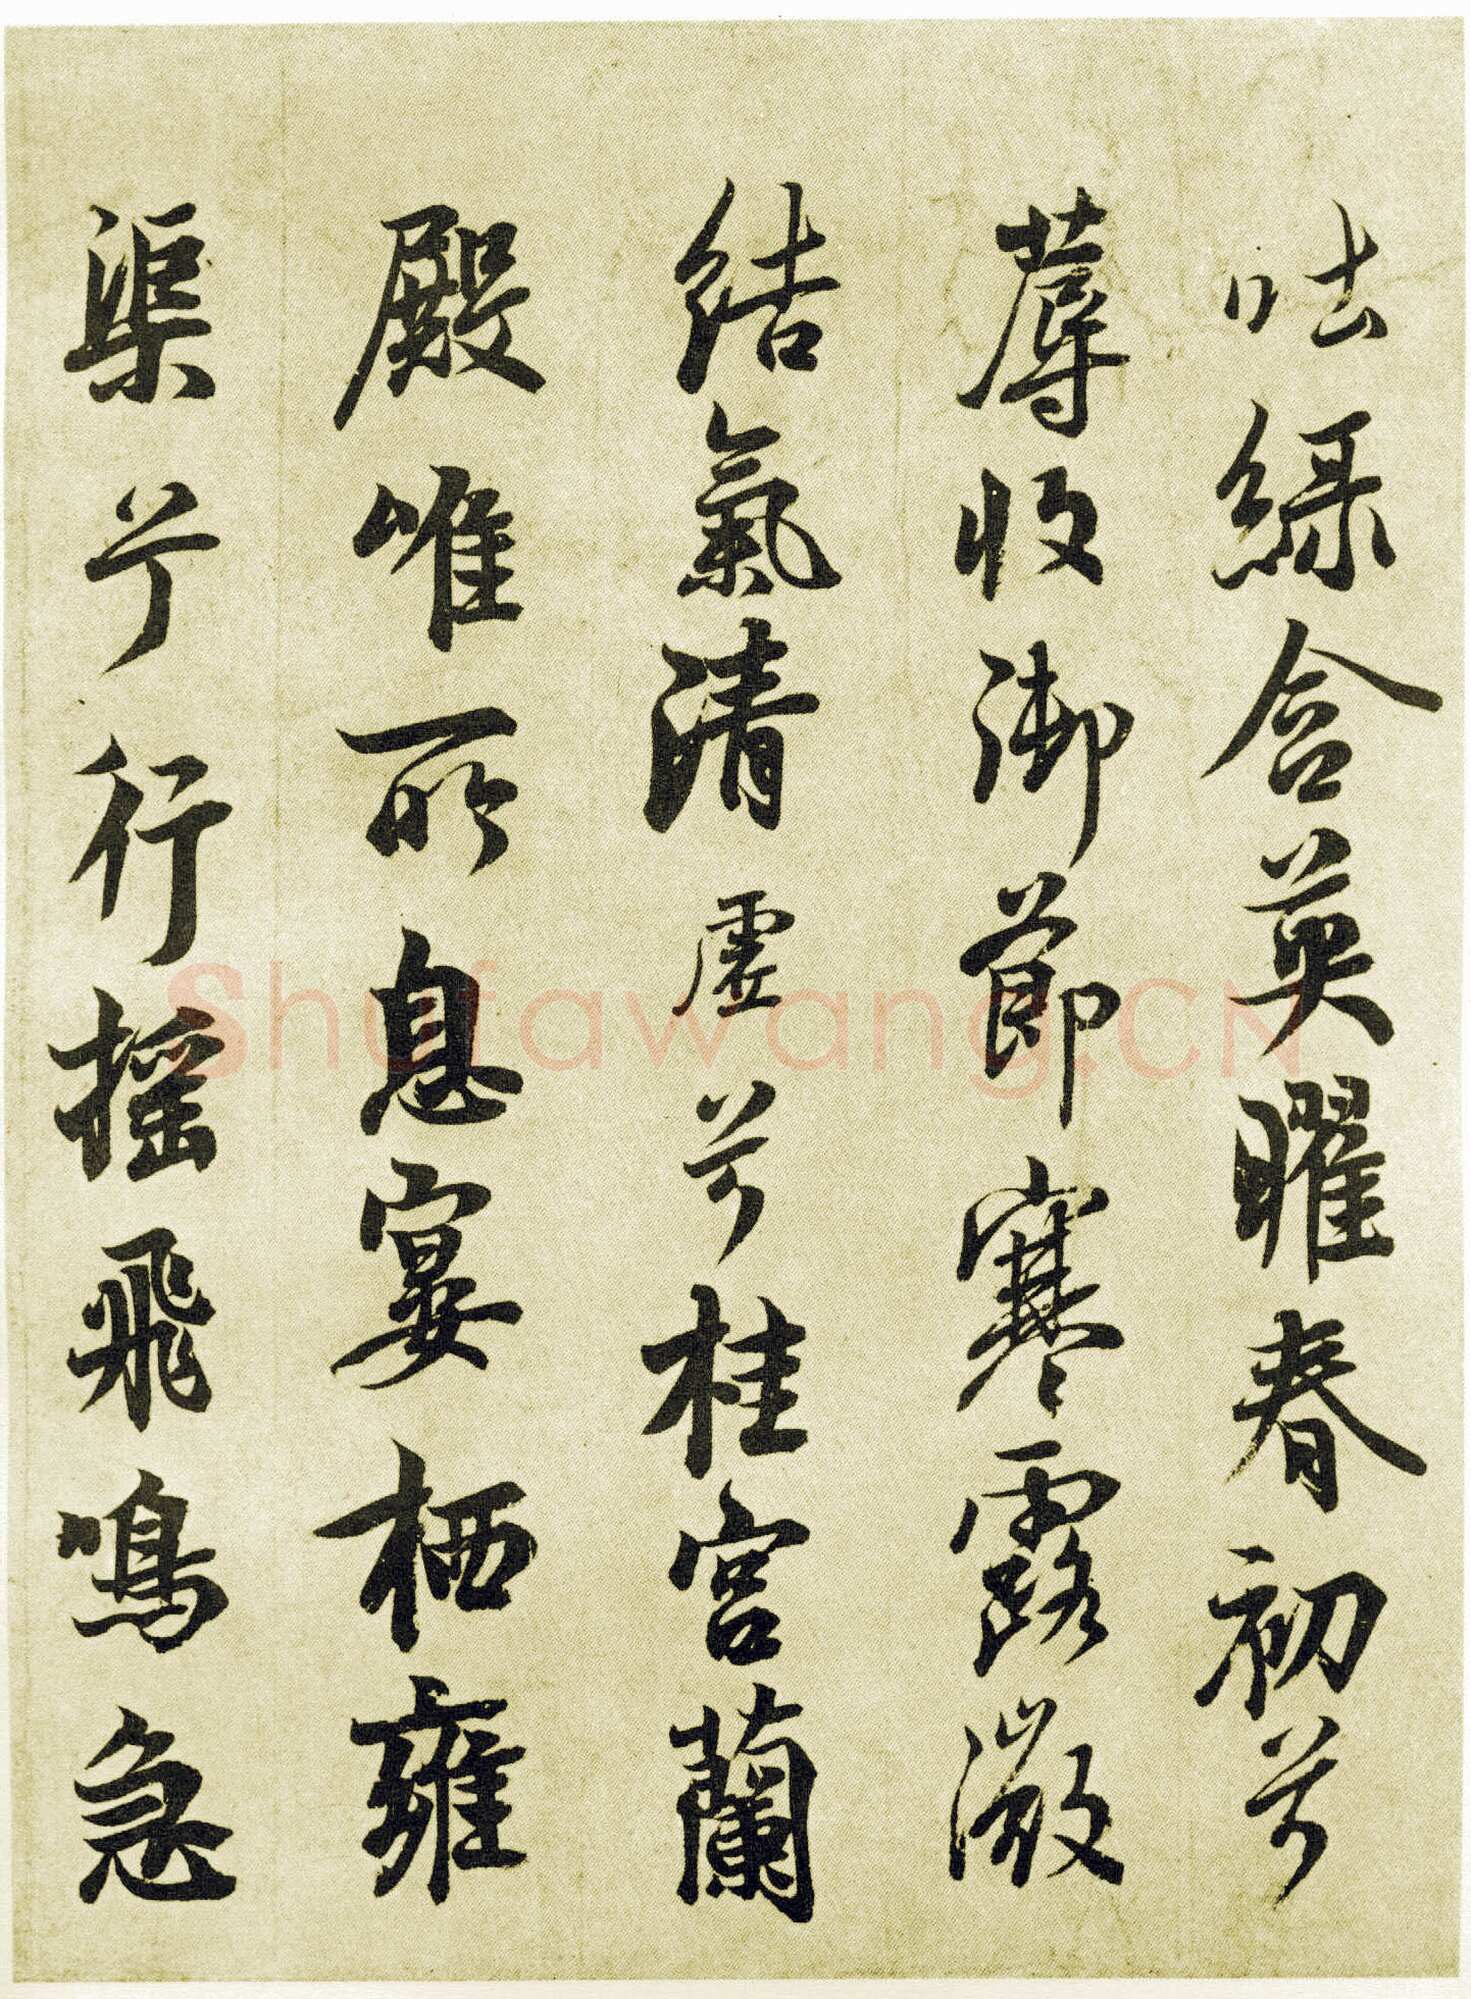 吐緑含英曜春初兮
蓐收御節寒露微
結氣清虛兮桂宮蘭
殿唯所息宴栖雍
渠兮行摇飛鳴急
Shufawang.CN